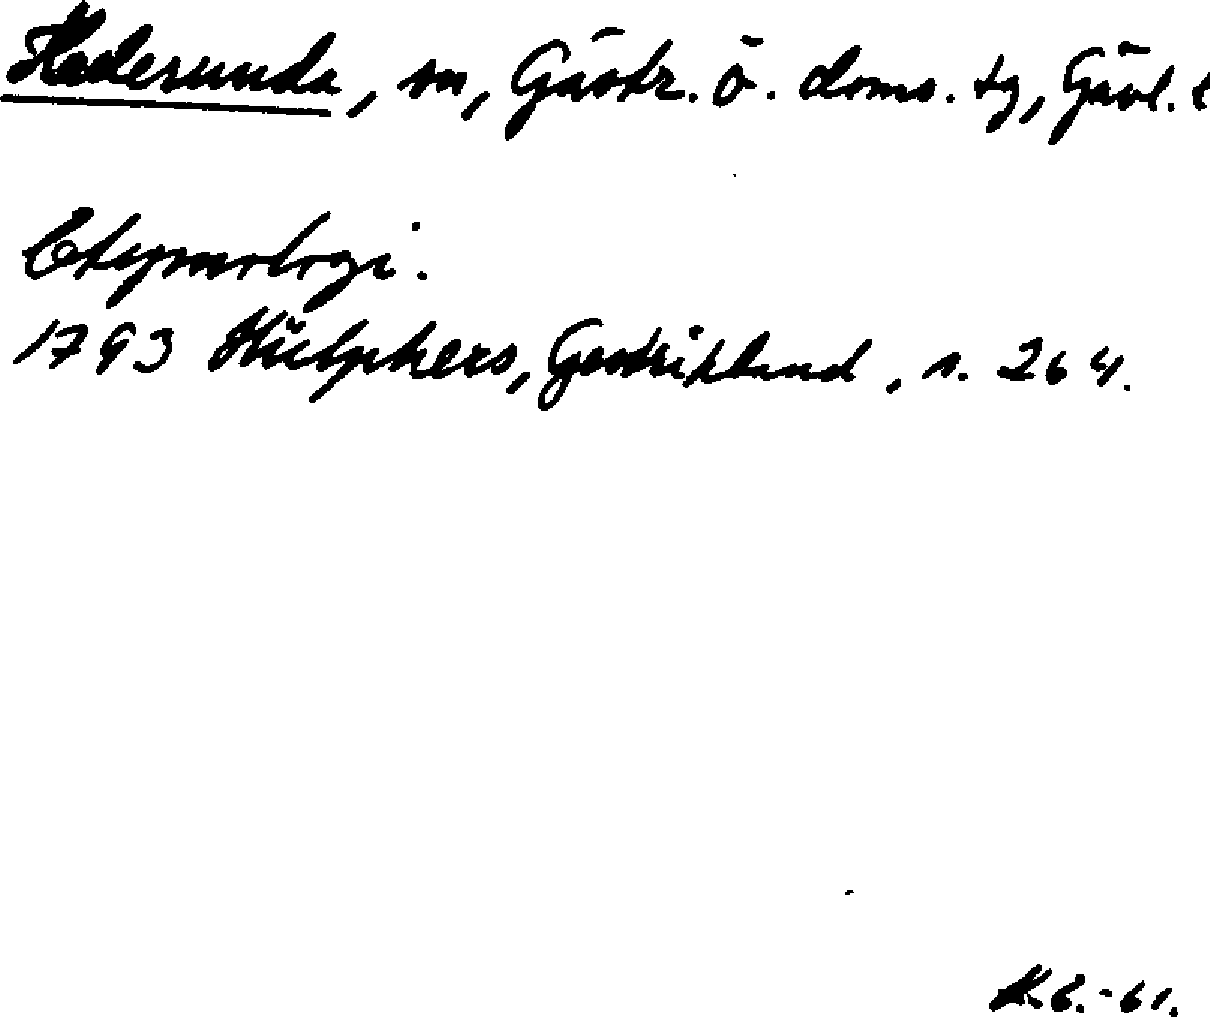 Hedesunda, sn, Gästr. ö. doms. tg, Gävl. l
Etymologi.
1793 Hülphers, Gestrikland, s. 264.
-61.